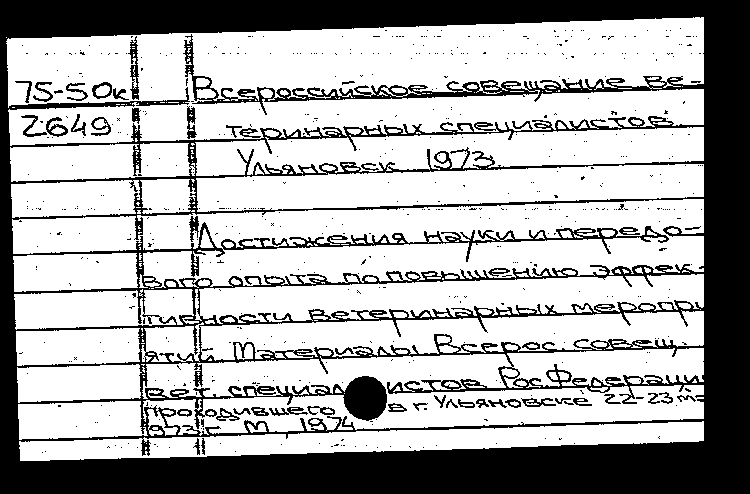 75-50к Всероссийское совещание ве-
2649 теринарных специалистов.
Ульяновск 1973.
Достижения науки и передо-
вого опыта по повышению эффек-
тивности ветеринарных меропри
ятий. Материалы Всерос. совещ.
вет. специалистов Рос. Федерации
проходившего в г. Ульяновске 22-23
1973 г. М., 1974